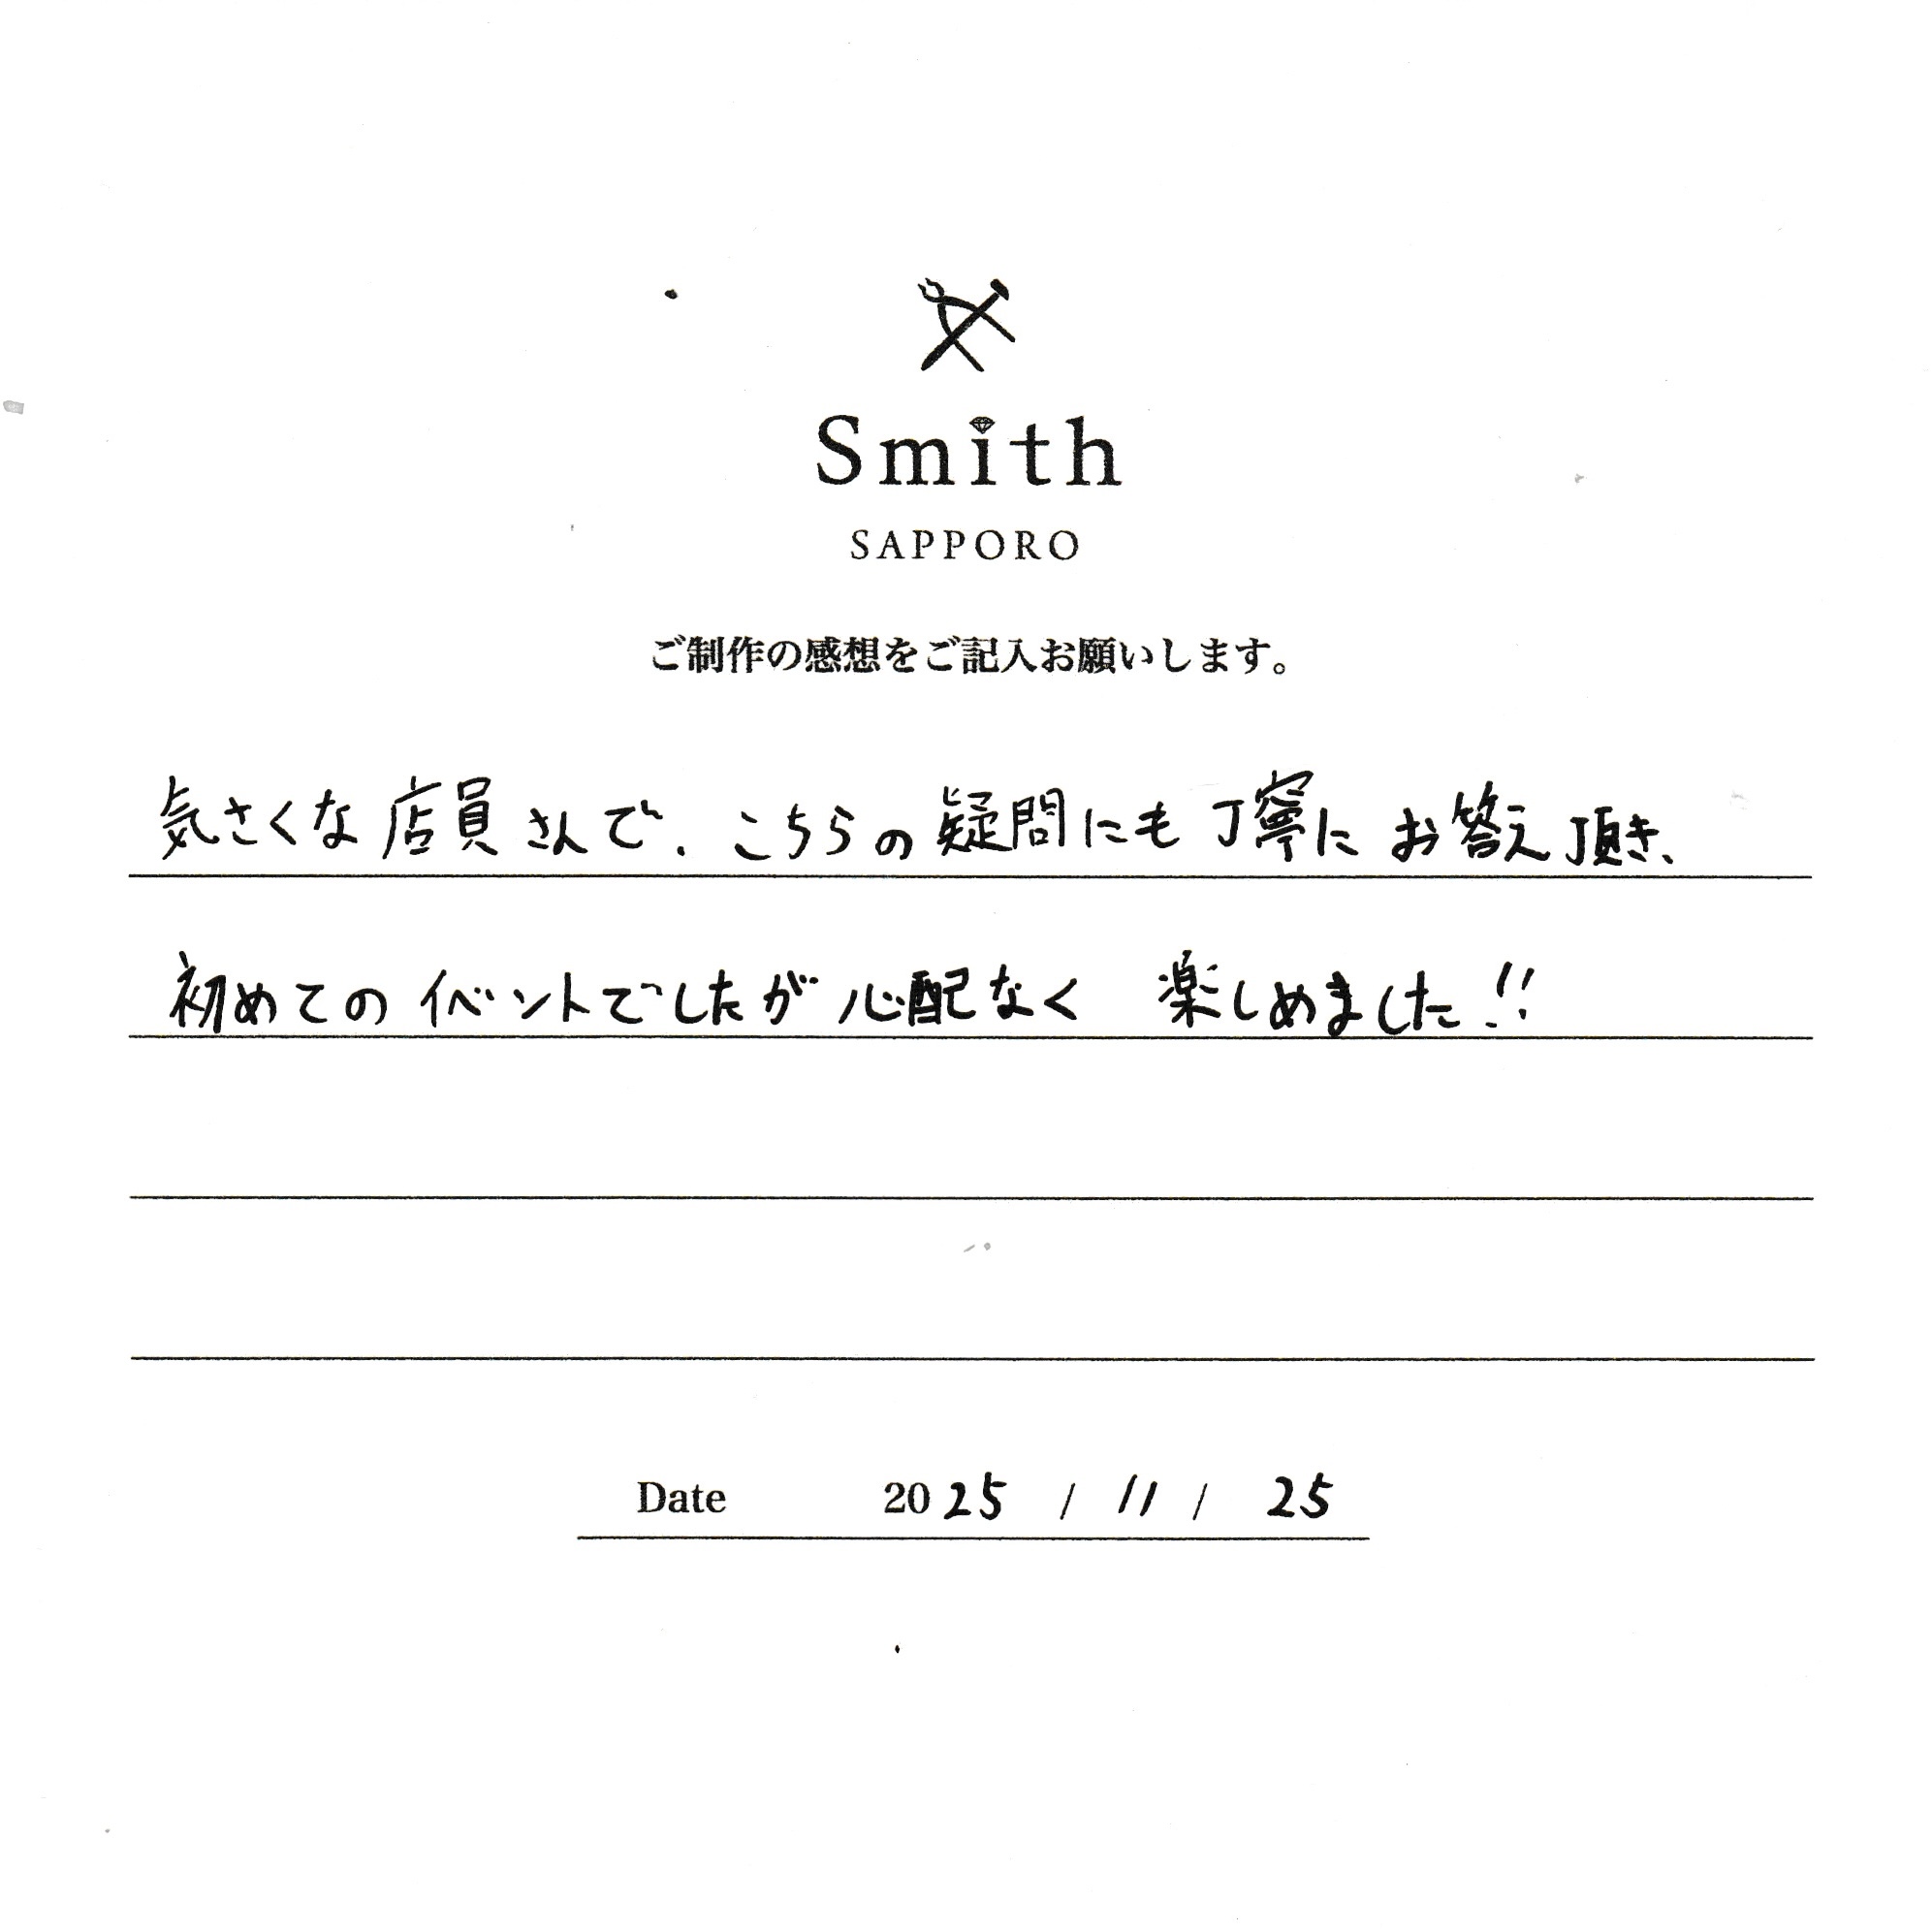 Smith
SAPPORO
ご制作の感想をご記入お願いします。
気さくな店員さんで、こちらの疑問にも丁寧にお答え頂き、
初めてのイベントでしたが心配なく 楽しめました!!
Date 2025 / 11 / 25